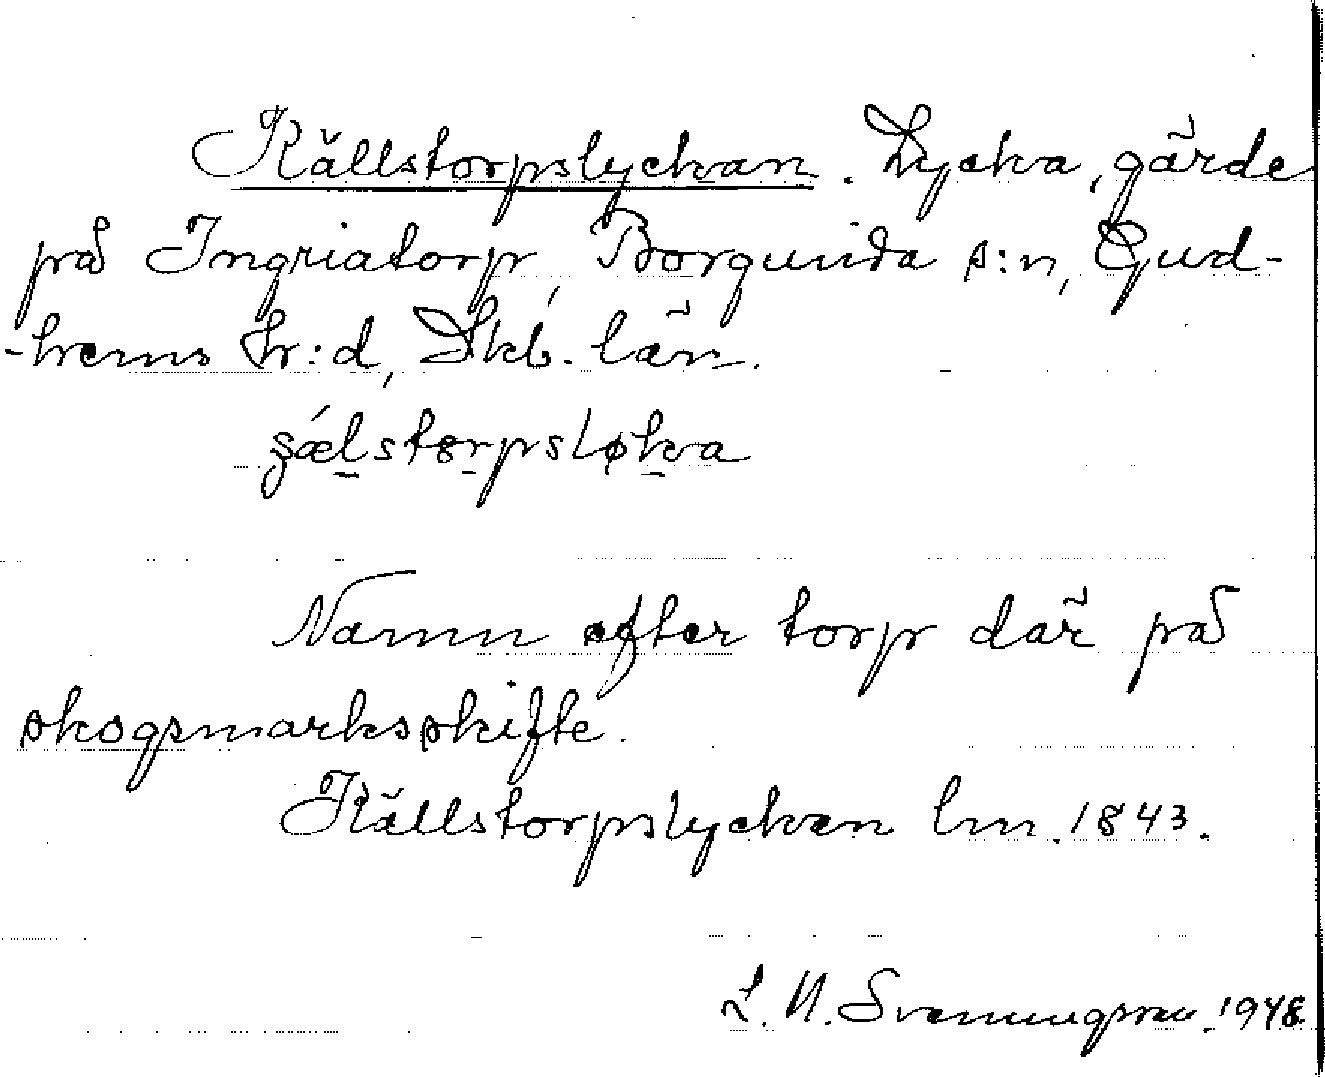 Källstorpslyckan. Lycka, gärde
på Ingriatorp, Borgunda s:n, Gud-
-hems hr:d, Skb. län.
Namn efter torp där på
skogsmarksskifte.
Källstorpslycken lm. 1843.
L. N. Svenungsson 1948